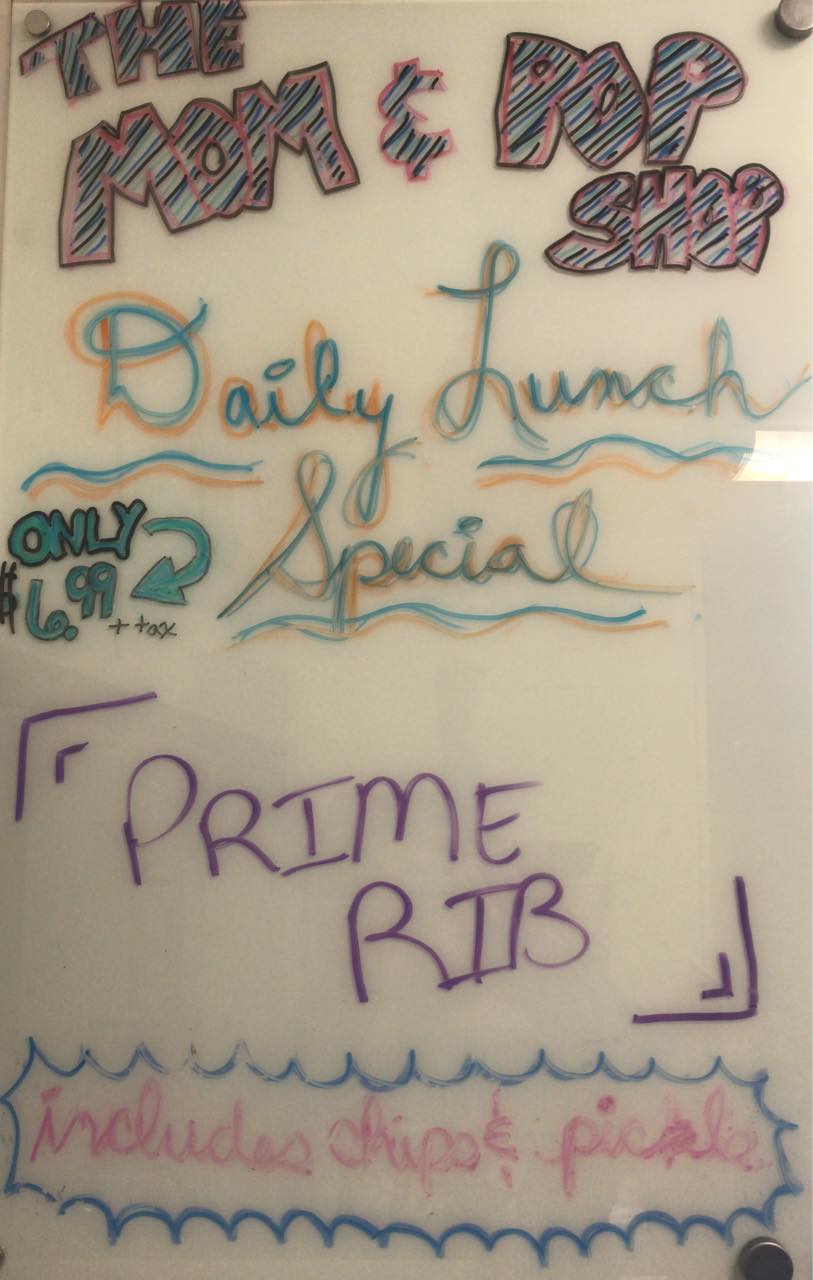 THE
MOM & POP
SHOP
Daily Lunch
Special
ONLY
$6.99
+ tax
PRIME
RIB
includes chips & pickle